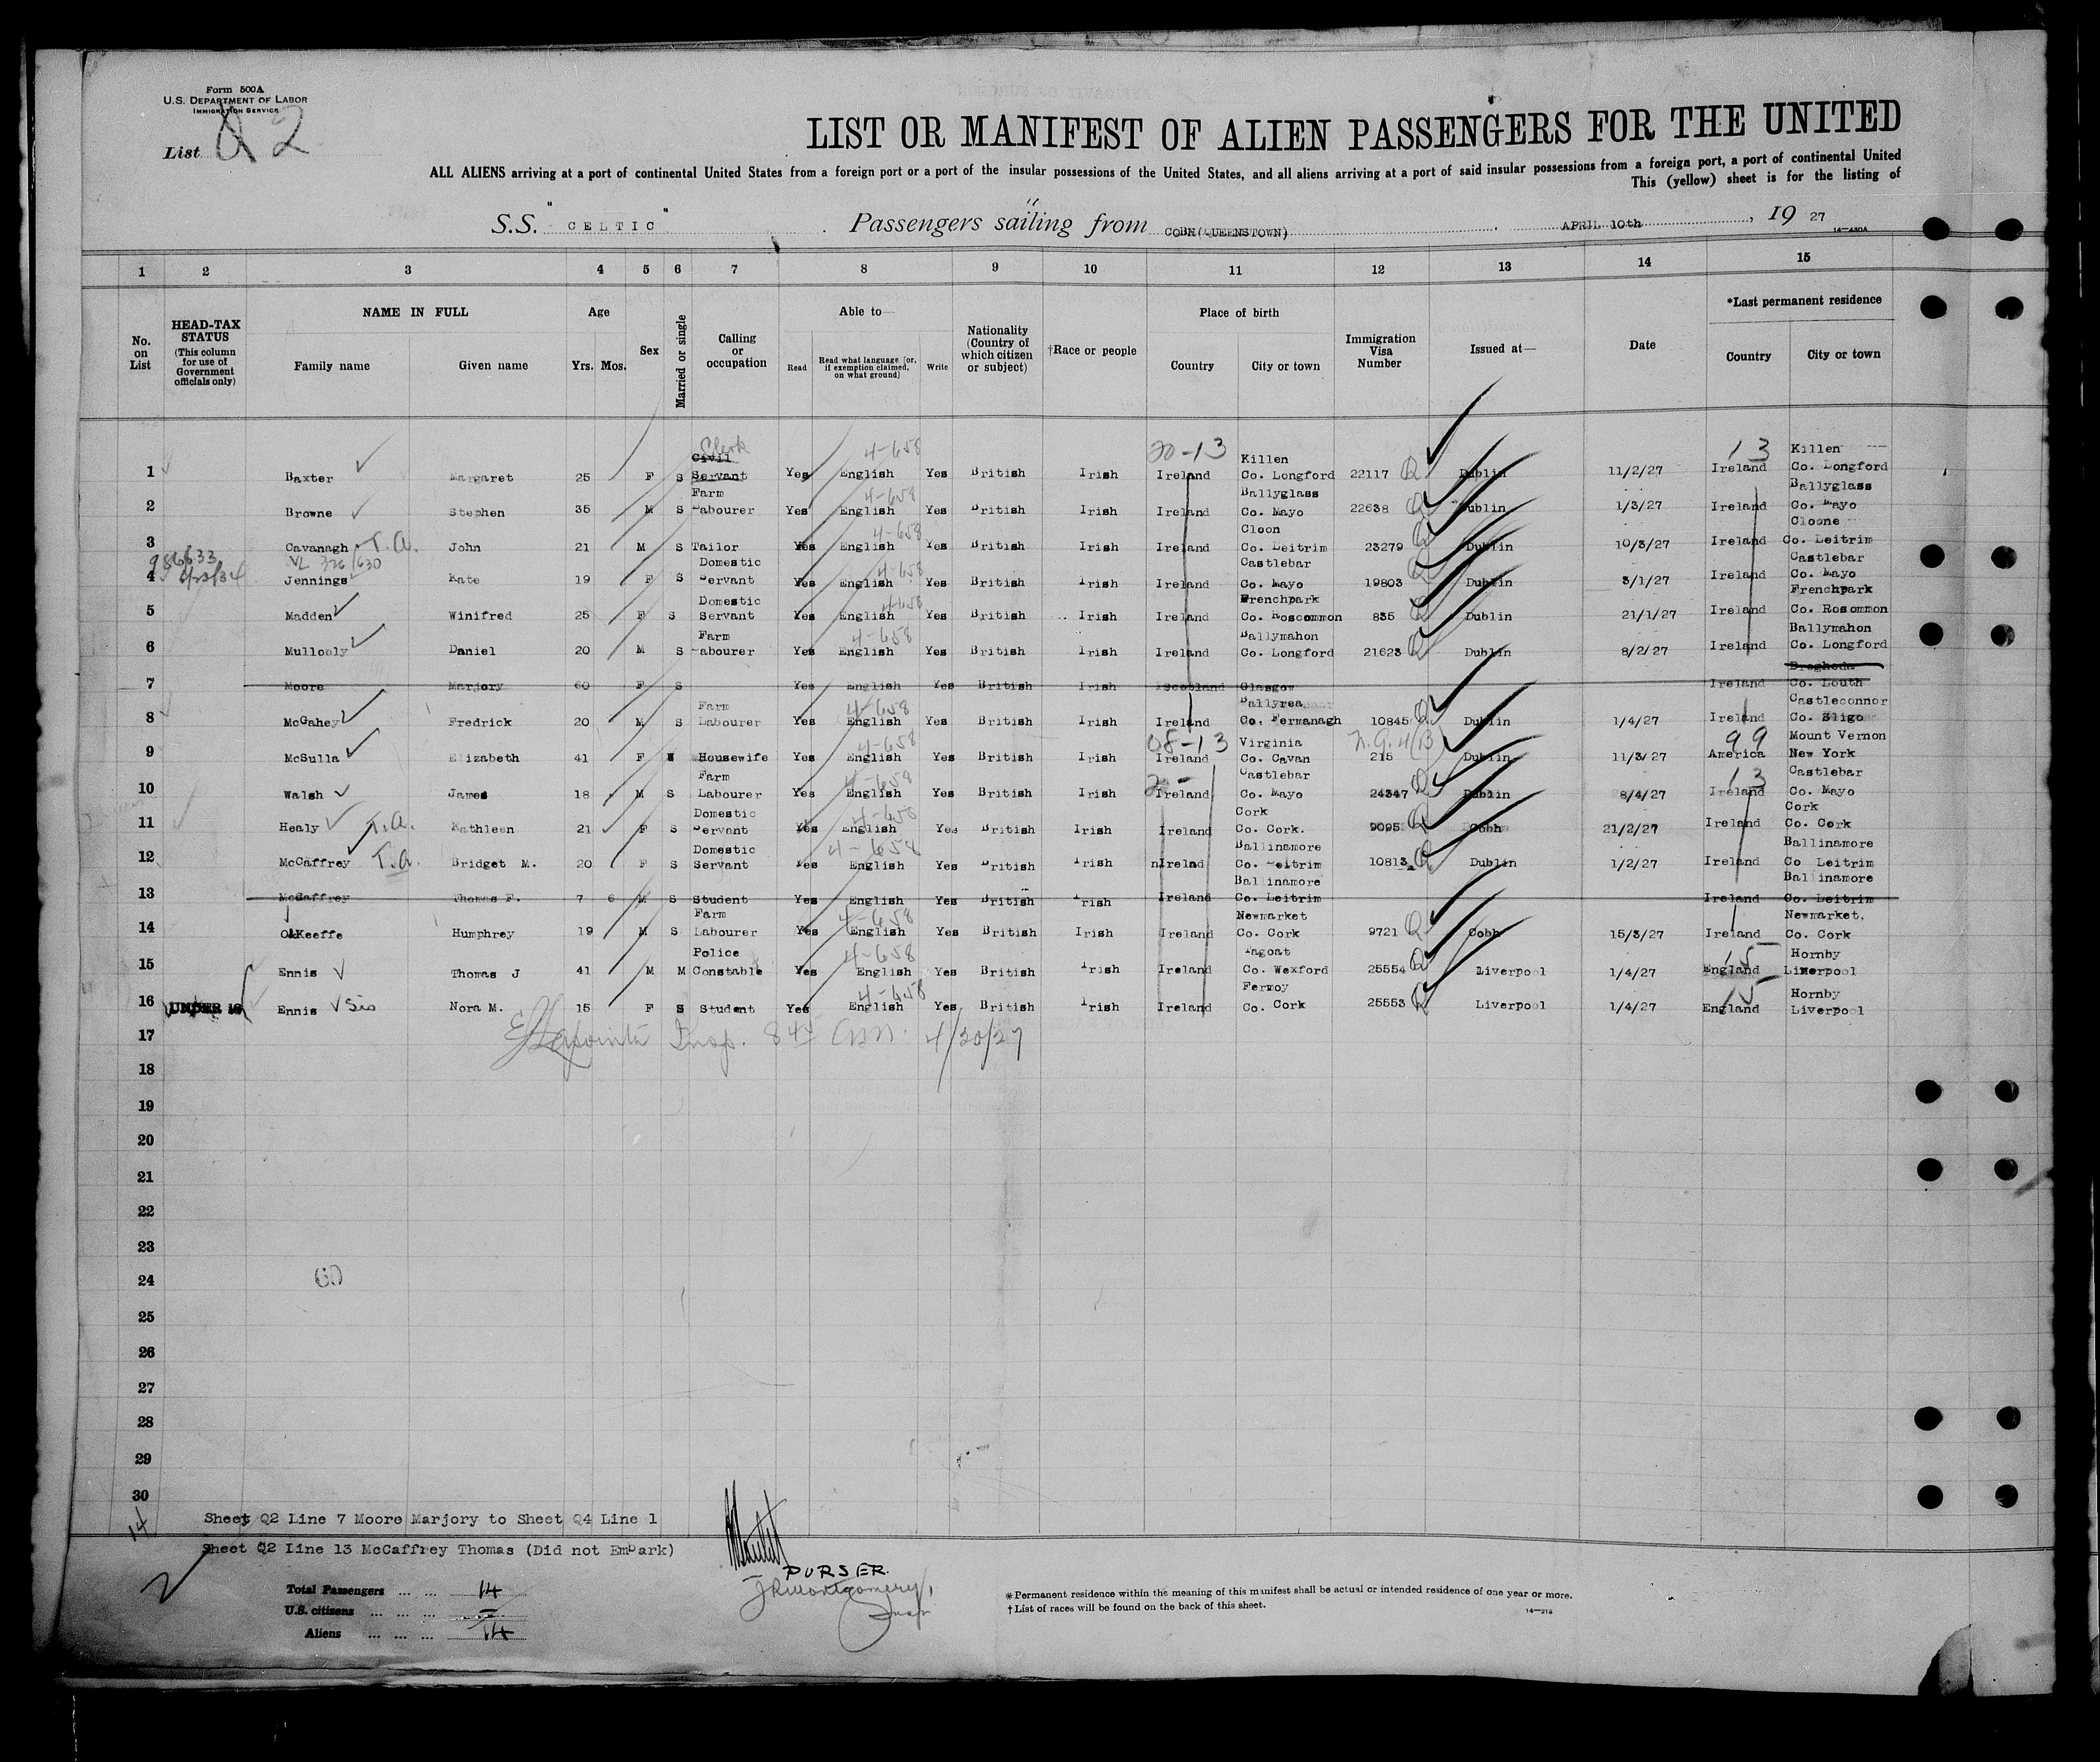 Form 500A
U.S. DEPARTMENT OF LABOR
IMMIGRATION SERVICE
List Q2
LIST OR MANIFEST OF ALIEN PASSENGERS FOR THE UNITED
ALL ALIENS arriving at a port of continental United States from a foreign port or a port of the insular possessions of the United States, and all aliens arriving at a port of said insular possessions from a foreign port, a port of continental United
This (yellow) sheet is for the listing of
S.S. "CELTIC" Passengers sailing from COBH (QUEENSTOWN) APRIL 10th, 19 27
14-480A
1 2 3 4 5 6 7 8 9 10 11 12 13 14 15
No. on List
HEAD-TAX STATUS (This column for use of Government officials only)
NAME IN FULL Family name Given name
Age Yrs. Mos.
Sex
Married or single
Calling or occupation
Able to— Read Read what language [or, if exemption claimed, on what ground] Write
Nationality (Country of which citizen or subject)
†Race or people
Place of birth Country City or town
Immigration Visa Number
Issued at—
Date
*Last permanent residence Country City or town
Clerk 4-658 20-13 Killen 13 Killen
1 Baxter Margaret 25 F S Civil Servant Yes English Yes British Irish Ireland Co. Longford 22117 Q Dublin 11/2/27 Ireland Co. Longford
Farm 4-658 Ballyglass Ballyglass
2 Browne Stephen 35 M S Labourer Yes English Yes British Irish Ireland Co. Mayo 22638 Q Dublin 1/3/27 Ireland Co. Mayo
4-658 Cloon Cloone
3 Cavanagh T.A. John 21 M S Tailor Yes English Yes British Irish Ireland Co. Leitrim 23279 Q Dublin 10/3/27 Ireland Co. Leitrim
986633 VL 326/630 Domestic 4-658 Castlebar Castlebar
4 Jennings Kate 19 F S Servant Yes English Yes British Irish Ireland Co. Mayo 19803 Q Dublin 3/1/27 Ireland Co. Mayo
Domestic 4-658 Frenchpark Frenchpark
5 Madden Winifred 25 F S Servant Yes English Yes British Irish Ireland Co. Roscommon 835 Q Dublin 21/1/27 Ireland Co. Roscommon
Farm 4-658 Ballymahon Ballymahon
6 Mullooly Daniel 20 M S Labourer Yes English Yes British Irish Ireland Co. Longford 21623 Q Dublin 8/2/27 Ireland Co. Longford
7 Moore Marjory 60 F S Yes English Yes British Irish Scotland Glasgow Ireland Co. Louth
Farm 4-658 Ballyrea Castleconnor
8 McGahey Fredrick 20 M S Labourer Yes English Yes British Irish Ireland Co. Fermanagh 10845 Q Dublin 1/4/27 Ireland Co. Sligo
4-658 08-13 Virginia 99 Mount Vernon
9 McSulla Elizabeth 41 F Housewife Yes English Yes British Irish Ireland Co. Cavan 215 Dublin 11/3/27 America New York
Farm 4-658 Castlebar 13 Castlebar
10 Walsh James 18 M S Labourer Yes English Yes British Irish Ireland Co. Mayo 24347 Q Dublin 8/4/27 Ireland Co. Mayo
Domestic 4-658 Cork Cork
11 Healy T.A. Kathleen 21 F S Servant Yes English Yes British Irish Ireland Co. Cork. 9095 Q Cobh 21/2/27 Ireland Co. Cork
Domestic 4-658 Ballinamore Ballinamore
12 McCaffrey T.A. Bridget M. 20 F S Servant Yes English Yes British Irish Irelnd Co. Leitrim 10813 Q Dublin 1/2/27 Ireland Co Leitrim
Ballinamore Ballinamore
13 McCaffrey Thomas F. 7 6 M S Student Yes English Yes British Irish Ireland Co. Leitrim Ireland Co. Leitrim
Farm 4-658 Newmarket Newmarket.
14 O'Keeffe Humphrey 19 M S Labourer Yes English Yes British Irish Ireland Co. Cork 9721 Q Cobh 15/3/27 Ireland Co. Cork
Police 4-658 Tagoat 15 Hornby
15 Ennis Thomas J 41 M M Constable Yes English Yes British Irish Ireland Co. Wexford 25554 Q Liverpool 1/4/27 England Liverpool
4-658 Fermoy 15 Hornby
16 UNDER 16 Ennis Nora M. 15 F S Student Yes English Yes British Irish Ireland Co. Cork 25553 Q Liverpool 1/4/27 England Liverpool
17 Insp. 4/20/27
18
19
20
21
22
23
24 60
25
26
27
28
29
30
14
Sheet Q2 Line 7 Moore Marjory to Sheet Q4 Line 1
Sheet Q2 Line 13 McCaffrey Thomas (Did not Embark)
2
Total Passengers ... ... 14
U.S. citizens ... ... ... —
Aliens ... ... ... 14
PURSER.
JR Montgomery,
Insp
*Permanent residence within the meaning of this manifest shall be actual or intended residence of one year or more.
†List of races will be found on the back of this sheet.
14-218